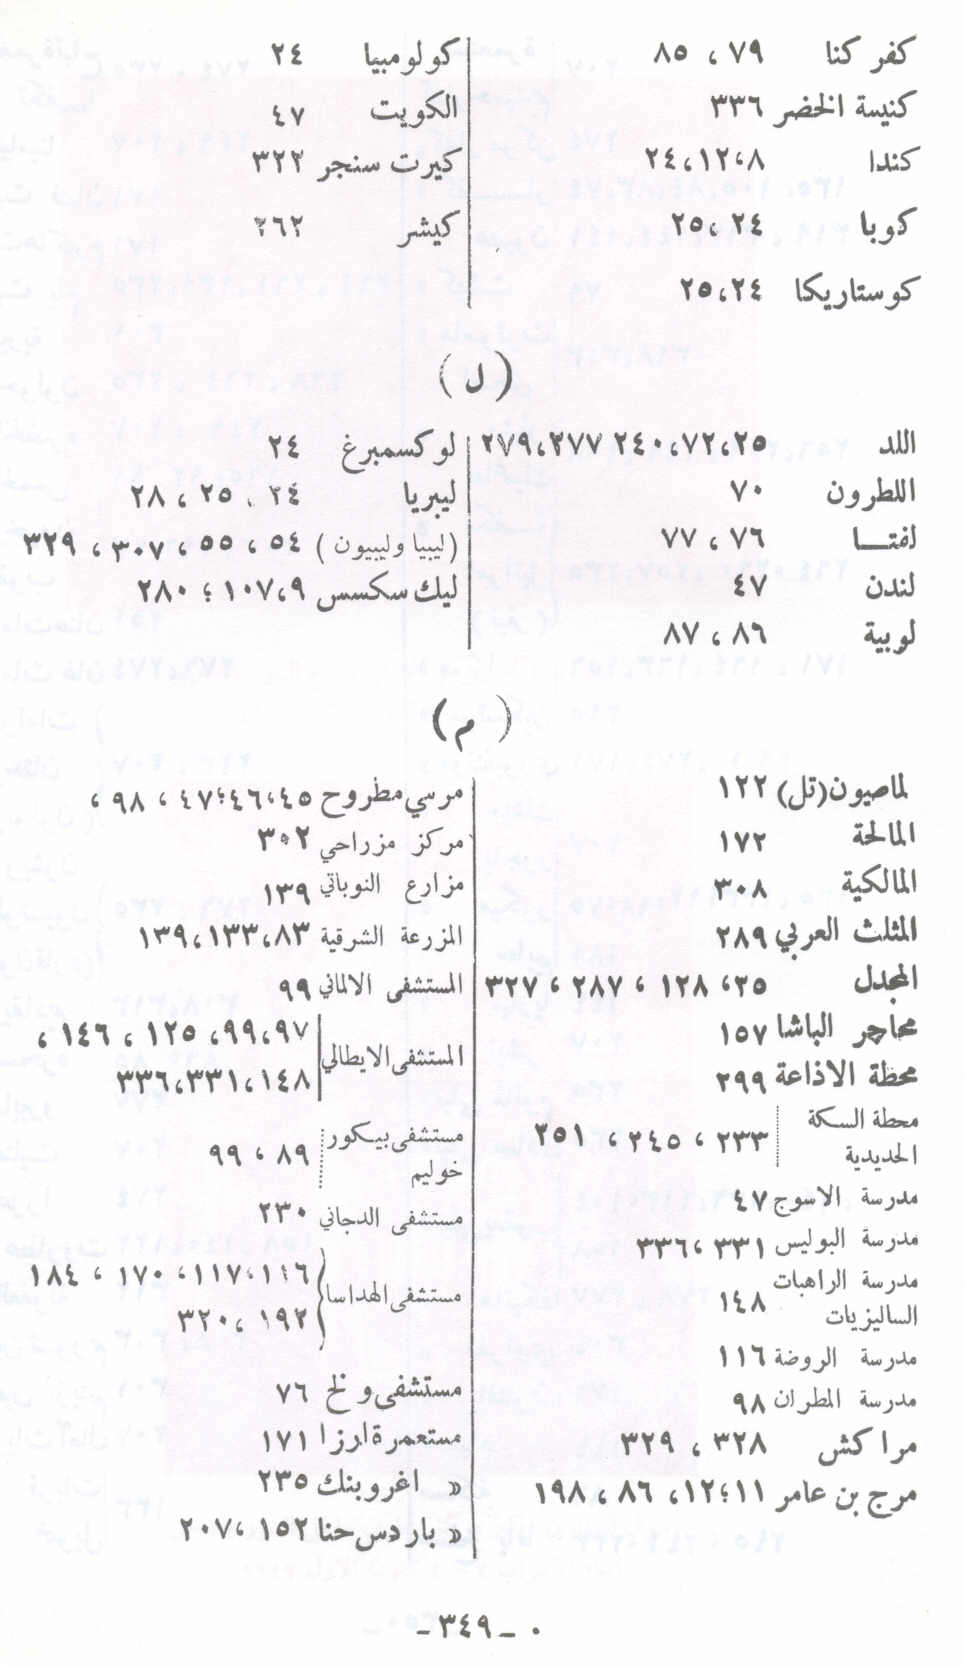 كفر كنا ٧٩ ، ٨٥
كنيسة الخضر ٣٣٦
كندا ٨،١٢،٢٤
كوبا ٢٤،٢٥
كوستاريكا ٢٤،٢٥
كولومبيا ٢٤
الكويت ٤٧
كيرت سنجر ٣٢٢
كيشر ٢٦٢
( ل )
اللد ٢٥،٧٢،٢٤٠ ٢٧٧،٢٧٩
اللطرون ٧٠
لفتـــا ٧٦ ، ٧٧
لندن ٤٧
لوبية ٨٦ ، ٨٧
لوكسمبرغ ٢٤
ليبريا ٢٤ ، ٢٥ ، ٢٨
(ليبيا وليبيون ) ٥٤ ، ٥٥ ، ٣٠٧ ، ٣٢٩
ليك سكسس ٩،١٠٧ ؛ ٢٨٠
( م )
لماصيون(تل) ١٢٢
المالحة ١٧٢
المالكية ٣٠٨
المثلث العربي ٢٨٩
المجدل ٢٥، ١٢٨ ، ٢٨٧ ، ٣٢٧
محاجر الباشا ١٥٧
محطة الاذاعة ٢٩٩
محطة السكة
الحديدية ٢٣٣ ، ٢٤٥ ، ٢٥١
مدرسة الاسوج ٤٧
مدرسة البوليس ٣٣١ ،٣٣٦
مدرسة الراهبات
الساليزيات ١٤٨
مدرسة الروضة ١١٦
مدرسة المطران ٩٨
مراكش ٣٢٨ ، ٣٢٩
مرج بن عامر ١١؛١٢، ٨٦ ، ١٩٨
مرسي مطروح ٤٥،٤٦؛٤٧ ، ٩٨ ،
مركز مزراحي ٣٠٢
مزارع النوباتي ١٣٩
المزرعة الشرقية ٨٣،١٣٣،١٣٩
المستشفى الالماني ٩٩
المستشفى الايطالي ٩٧،٩٩، ١٢٥ ، ١٤٦ ،
١٤٨،٣٣١،٣٣٦
مستشفى بيكور
خوليم ٨٩ ، ٩٩
مستشفى الدجاني ٢٣٠
مستشفى الهداسا ١١٦،١١٧، ١٧٠ ، ١٨٤
١٩٢ ،٣٢٠
مستشفى ولخ ٧٦
مستعمرة ارزا ١٧١
« اغروبنك ٢٣٥
« باردس حنا ١٥٢ ،٢٠٧
- ٣٤٩ -